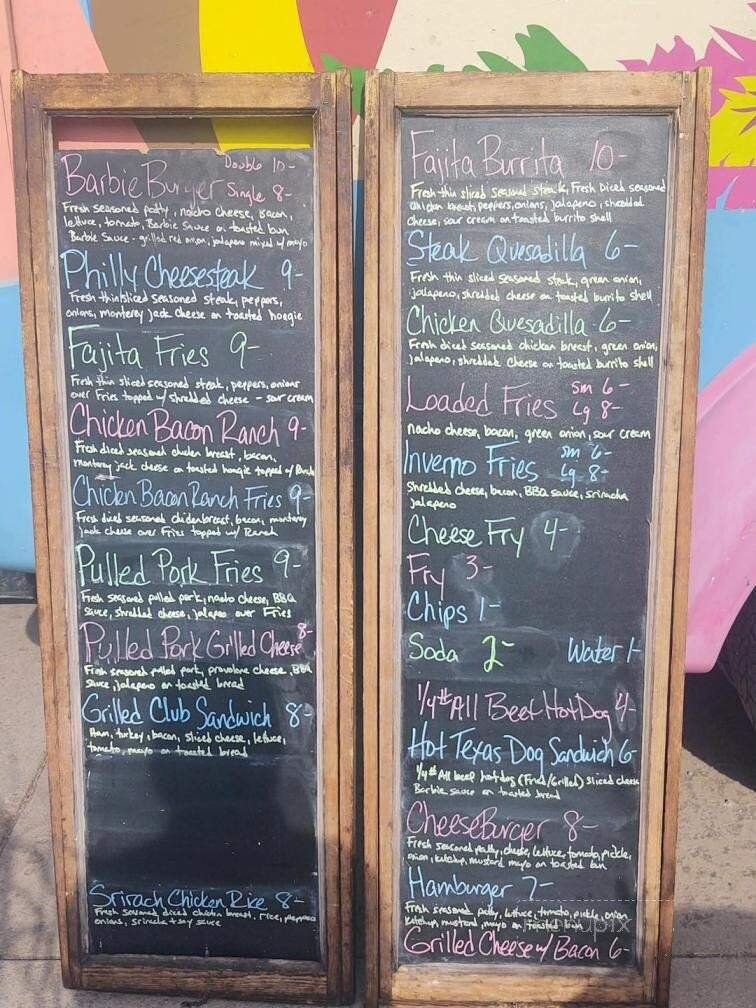 Double 10-
Barbie Burger Single 8-
Fresh seasoned patty, nacho cheese, Bacon,
lettuce, tomato, Barbie Sauce on toasted bun
Barbie Sauce - grilled red onion, jalapeno mixed w/ mayo
Philly Cheesesteak 9-
Fresh thin sliced seasoned steak, peppers,
onions, monterey jack cheese on toasted hoagie
Fajita Fries 9-
Fresh thin sliced seasoned steak, peppers, onions
over Fries topped w/ shredded cheese - sour cream
Chicken Bacon Ranch 9-
Fresh diced seasoned chicken breast, bacon,
monterey jack cheese on toasted hoagie topped w/ Ranch
Chicken Bacon Ranch Fries 9-
Fresh diced seasoned chicken breast, bacon, monterey
jack cheese over Fries topped w/ Ranch
Pulled Pork Fries 9-
Fresh seasoned pulled pork, nacho cheese, BBQ
sauce, shredded cheese, jalapeo over Fries
Pulled Pork Grilled Cheese 8-
Fresh seasoned pulled pork, provolone cheese, BBQ
sauce, jalapeno on toasted bread
Grilled Club Sandwich 8-
Ham, turkey, bacon, sliced cheese, lettuce,
tomato, mayo on toasted bread
Srirach Chicken Rice 8-
Fresh seasoned diced chicken breast, rice, peppers
onions, sriracha + soy sauce
Fajita Burrita 10-
Fresh thin sliced seasoned steak, Fresh Diced seasoned
chicken breast, peppers, onions, jalapeno, shredded
cheese, sour cream on toasted burrito shell
Steak Quesadilla 6-
Fresh thin sliced seasoned steak, green onion,
jalapeno, shredded cheese on toasted burrito shell
Chicken Quesadilla 6-
Fresh diced seasoned chicken breast, green onion,
jalapeno, shredded cheese on toasted burrito shell
Loaded Fries sm 6-
Lg 8-
nacho cheese, bacon, green onion, sour cream
Inverno Fries sm 6-
Lg 8-
Shredded cheese, bacon, BBQ sauce, sriracha
jalapeno
Cheese Fry 4-
Fry 3-
Chips 1-
Soda 2- Water 1-
1/4# All Beef Hot Dog 4-
Hot Texas Dog Sandwich 6-
1/4# All beef hotdog (Fried/Grilled) sliced cheese
Barbie sauce on toasted bread
CheeseBurger 8-
Fresh seasoned patty, cheese, lettuce, tomato, pickle,
onion, ketchup, mustard mayo on toasted bun
Hamburger 7-
Fresh seasoned patty, lettuce, tomato, pickle, onion
ketchup, mustard, mayo on toasted bun
Grilled Cheese w/ Bacon 6-